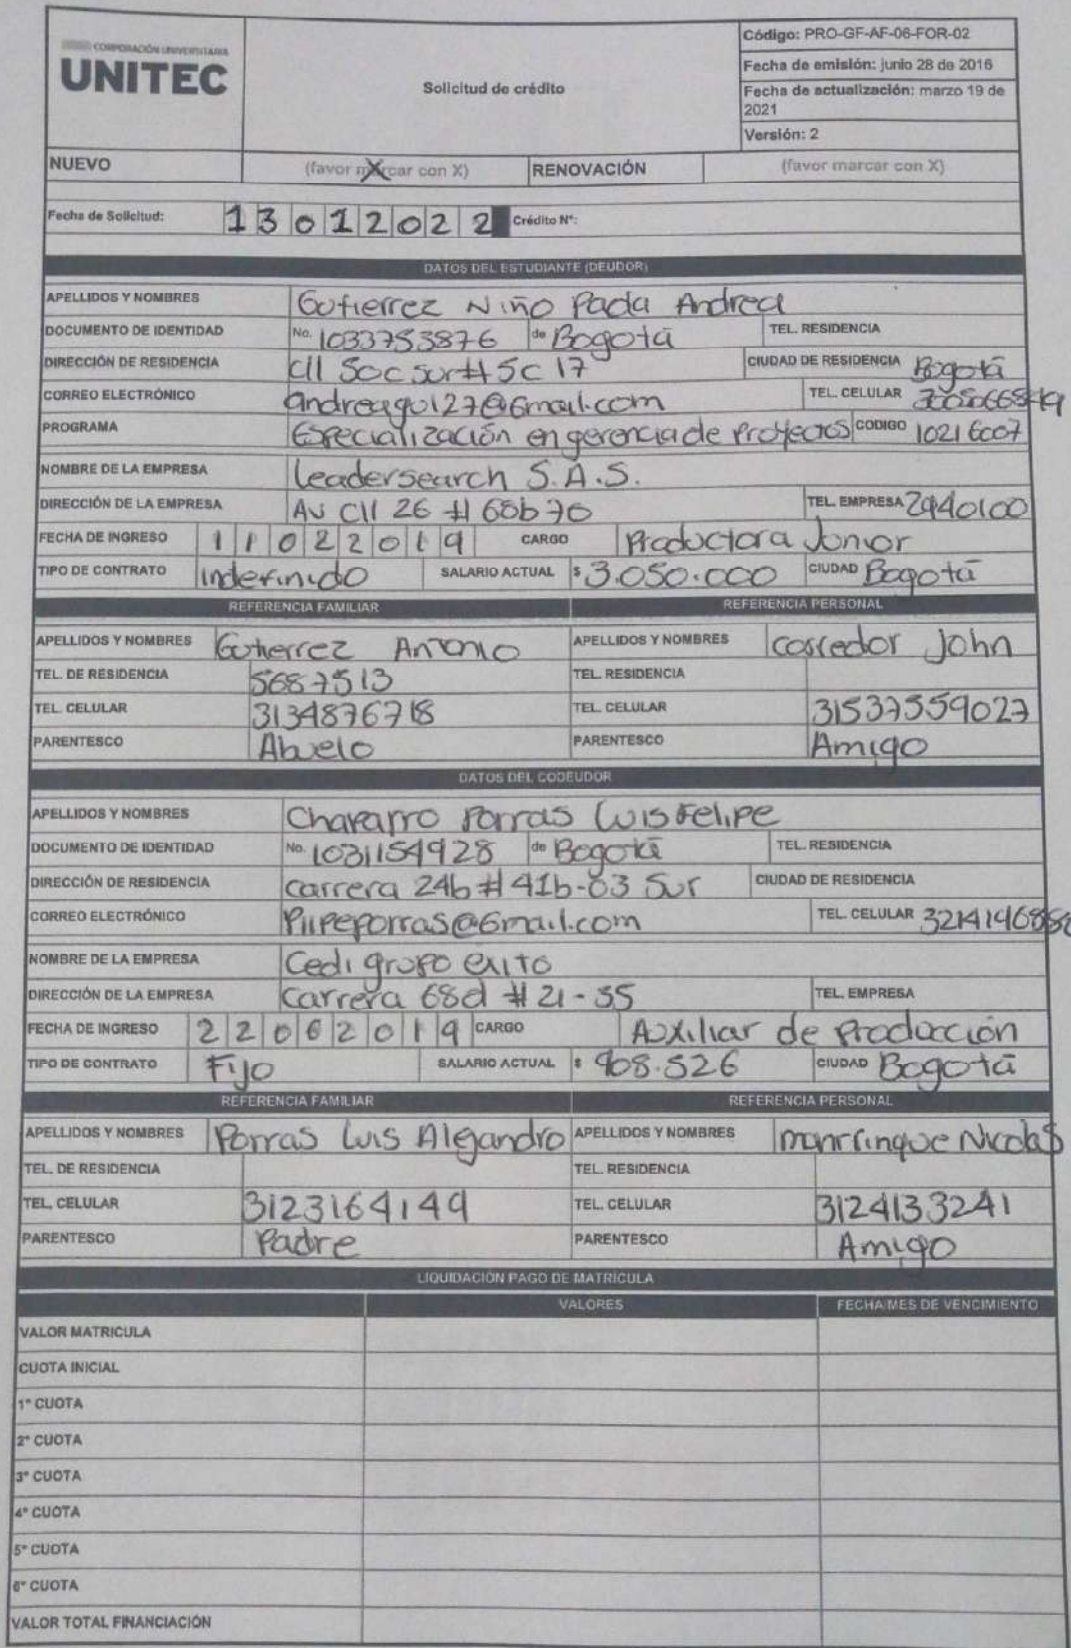 CORPORACIÓN UNIVERSITARIA
UNITEC
Solicitud de crédito
Código: PRO-GF-AF-06-FOR-02
Fecha de emisión: junio 28 de 2016
Fecha de actualización: marzo 19 de 2021
Versión: 2
NUEVO (favor marcar con X) X RENOVACIÓN (favor marcar con X)
Fecha de Solicitud: 13012022 Crédito N°:
DATOS DEL ESTUDIANTE (DEUDOR)
APELLIDOS Y NOMBRES Gutierrez Niño Paola Andrea
DOCUMENTO DE IDENTIDAD No. 1033753876 de Bogotá TEL. RESIDENCIA
DIRECCIÓN DE RESIDENCIA Cll 50c sur # 5c 17 CIUDAD DE RESIDENCIA Bogotá
CORREO ELECTRÓNICO andreagu127@Gmail.com TEL. CELULAR
PROGRAMA Especialización en gerencia de Proyectos CODIGO 10216007
NOMBRE DE LA EMPRESA Leadersearch S.A.S.
DIRECCIÓN DE LA EMPRESA Av Cll 26 # 68b 70 TEL. EMPRESA 2940100
FECHA DE INGRESO 11022019 CARGO Productora Junior
TIPO DE CONTRATO indefinido SALARIO ACTUAL $ 3.050.000 CIUDAD Bogotá
REFERENCIA FAMILIAR REFERENCIA PERSONAL
APELLIDOS Y NOMBRES Gutierrez Antonio APELLIDOS Y NOMBRES Corredor John
TEL. DE RESIDENCIA 5687513 TEL. RESIDENCIA
TEL. CELULAR 3134876718 TEL. CELULAR 31537559027
PARENTESCO Abuelo PARENTESCO Amigo
DATOS DEL CODEUDOR
APELLIDOS Y NOMBRES Chaparro Porras Luis Felipe
DOCUMENTO DE IDENTIDAD No. 1031154928 de Bogotá TEL. RESIDENCIA
DIRECCIÓN DE RESIDENCIA Carrera 24b # 41b-03 Sur CIUDAD DE RESIDENCIA
CORREO ELECTRÓNICO Piipeporras@Gmail.com TEL. CELULAR
NOMBRE DE LA EMPRESA Cedi grupo exito
DIRECCIÓN DE LA EMPRESA Carrera 68d # 21-35 TEL. EMPRESA
FECHA DE INGRESO 22062019 CARGO Auxiliar de Producción
TIPO DE CONTRATO Fijo SALARIO ACTUAL $ 908.526 CIUDAD Bogotá
REFERENCIA FAMILIAR REFERENCIA PERSONAL
APELLIDOS Y NOMBRES Porras Luis Alejandro APELLIDOS Y NOMBRES manrrinque Nicolas
TEL. DE RESIDENCIA TEL. RESIDENCIA
TEL. CELULAR 3123164149 TEL. CELULAR 3124133241
PARENTESCO Padre PARENTESCO Amigo
LIQUIDACIÓN PAGO DE MATRÍCULA
VALORES FECHA/MES DE VENCIMIENTO
VALOR MATRICULA
CUOTA INICIAL
1ª CUOTA
2ª CUOTA
3ª CUOTA
4ª CUOTA
5ª CUOTA
6ª CUOTA
VALOR TOTAL FINANCIACIÓN